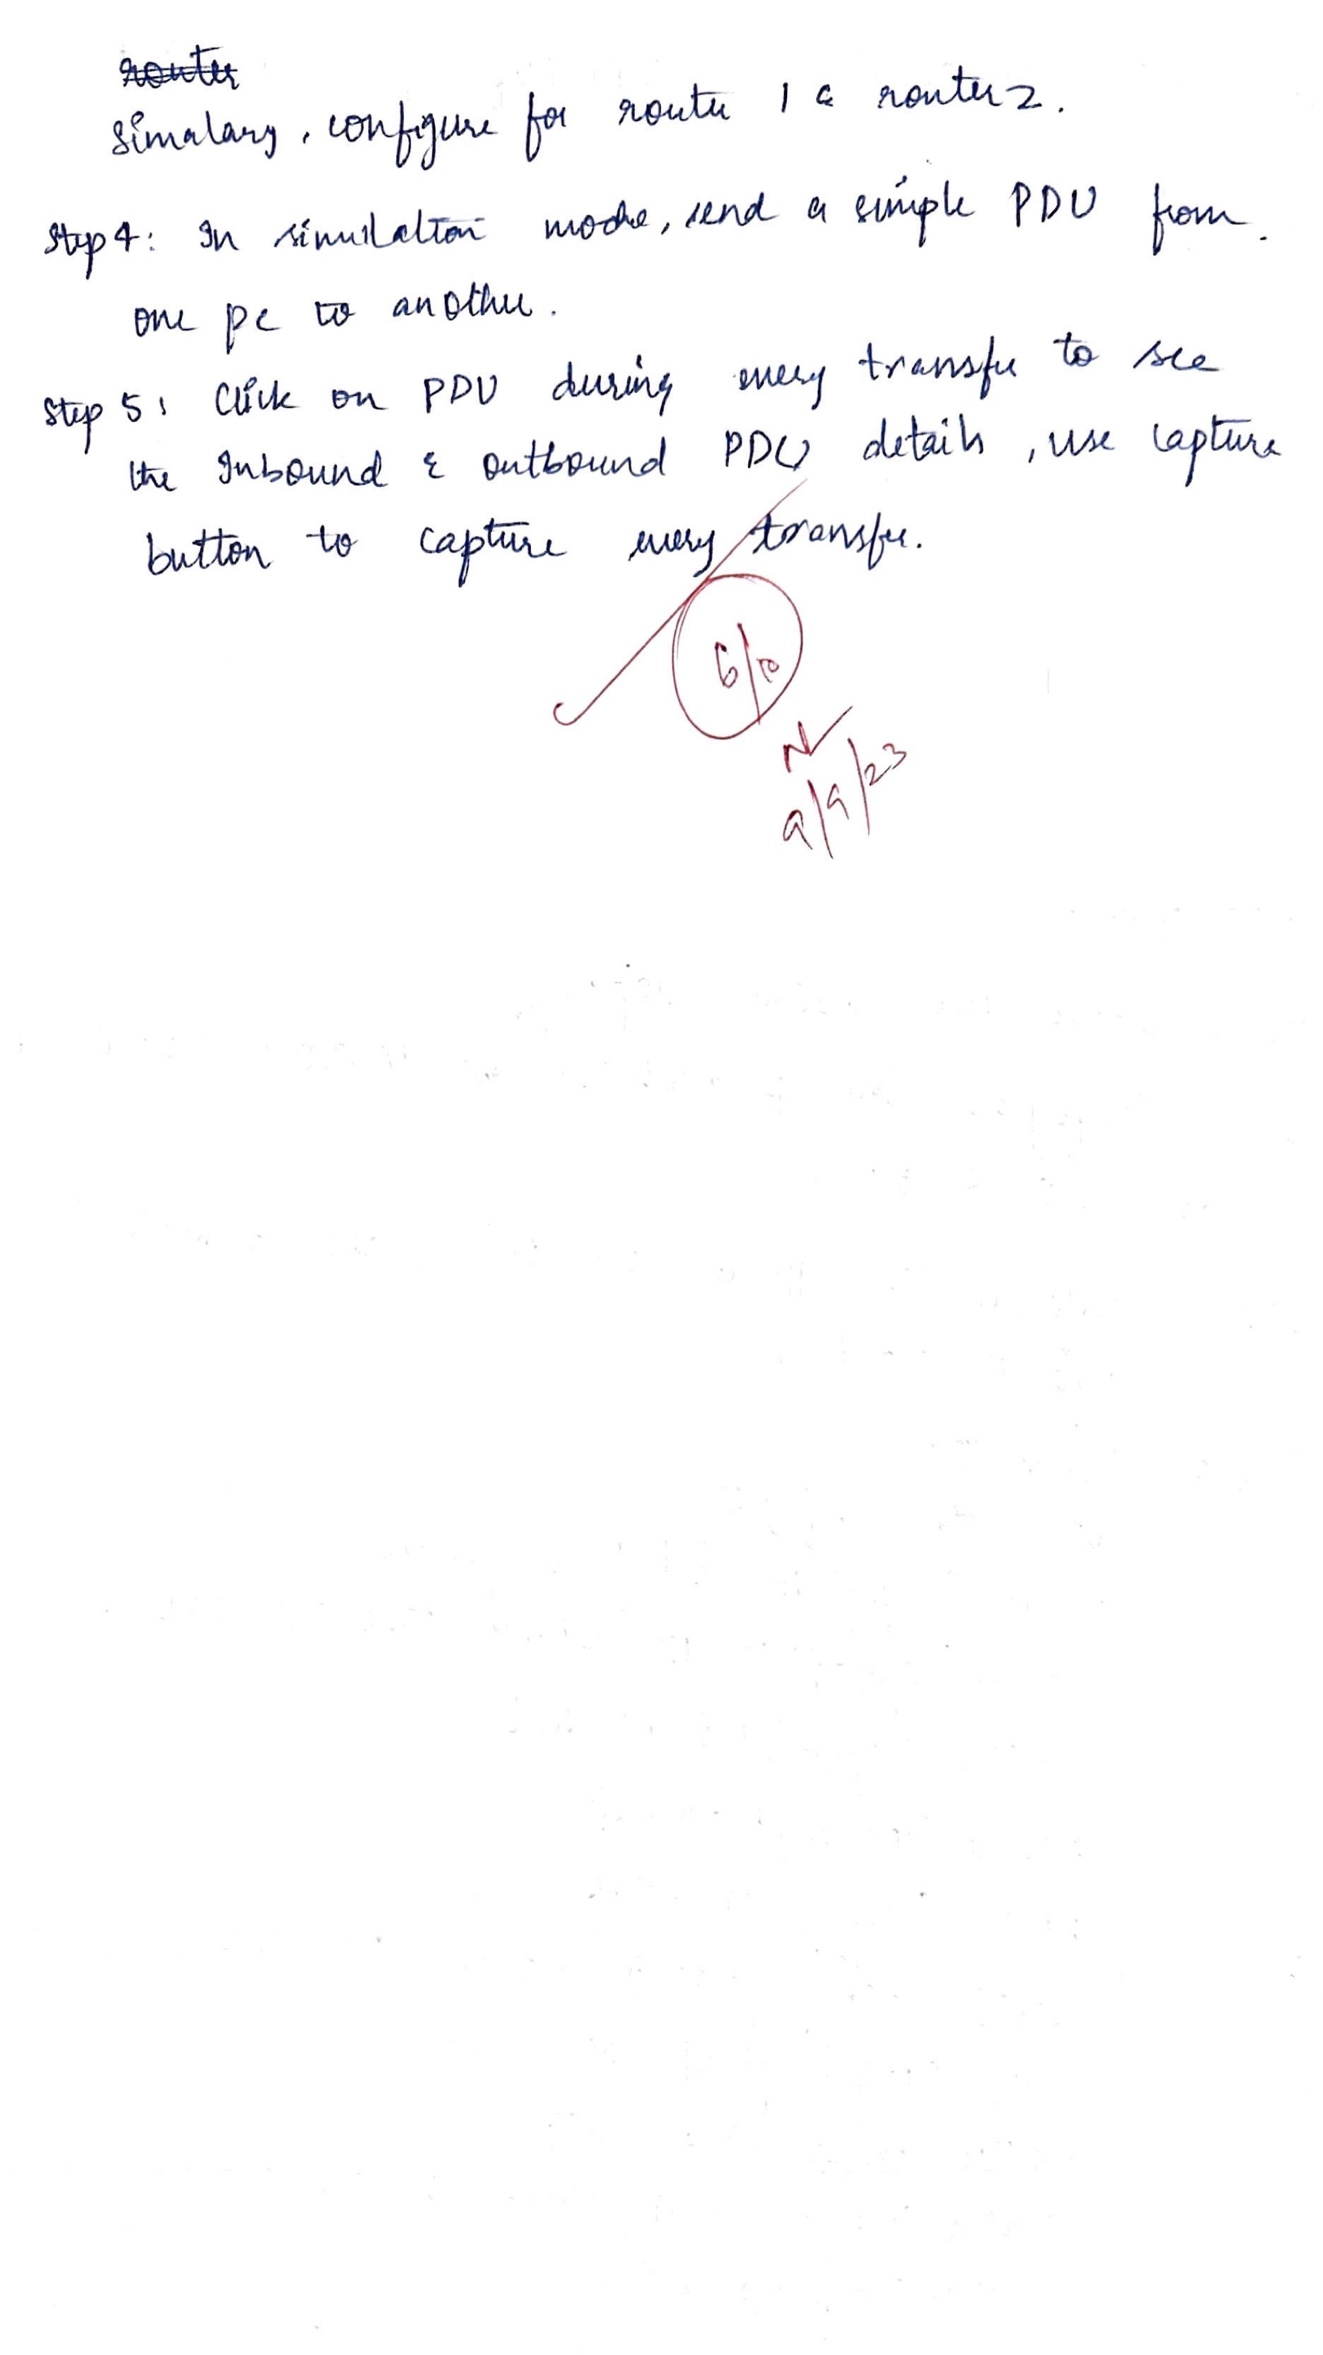 router
Simalary, configure for router 1 & router 2.
Step 4: In simulation mode, send a simple PDU from
one pc to another.
Step 5: Click on PDU during every transfer to see
the Inbound & outbound PDU details, use capture
button to capture every transfer.
6/10
9/9/23